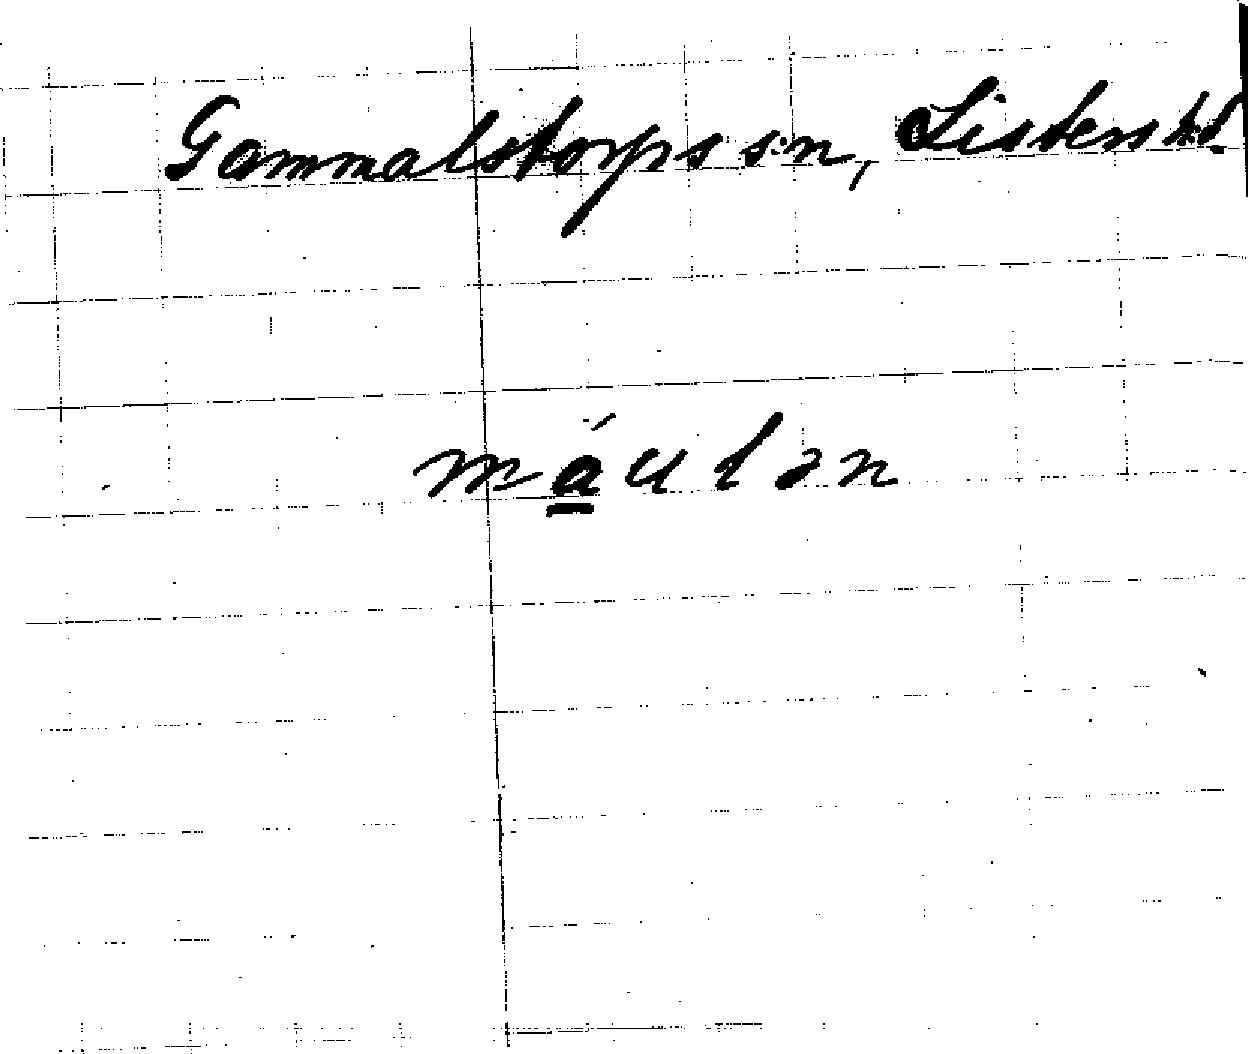 Gammalstorps s:n, Listers hd.
má̱ulən